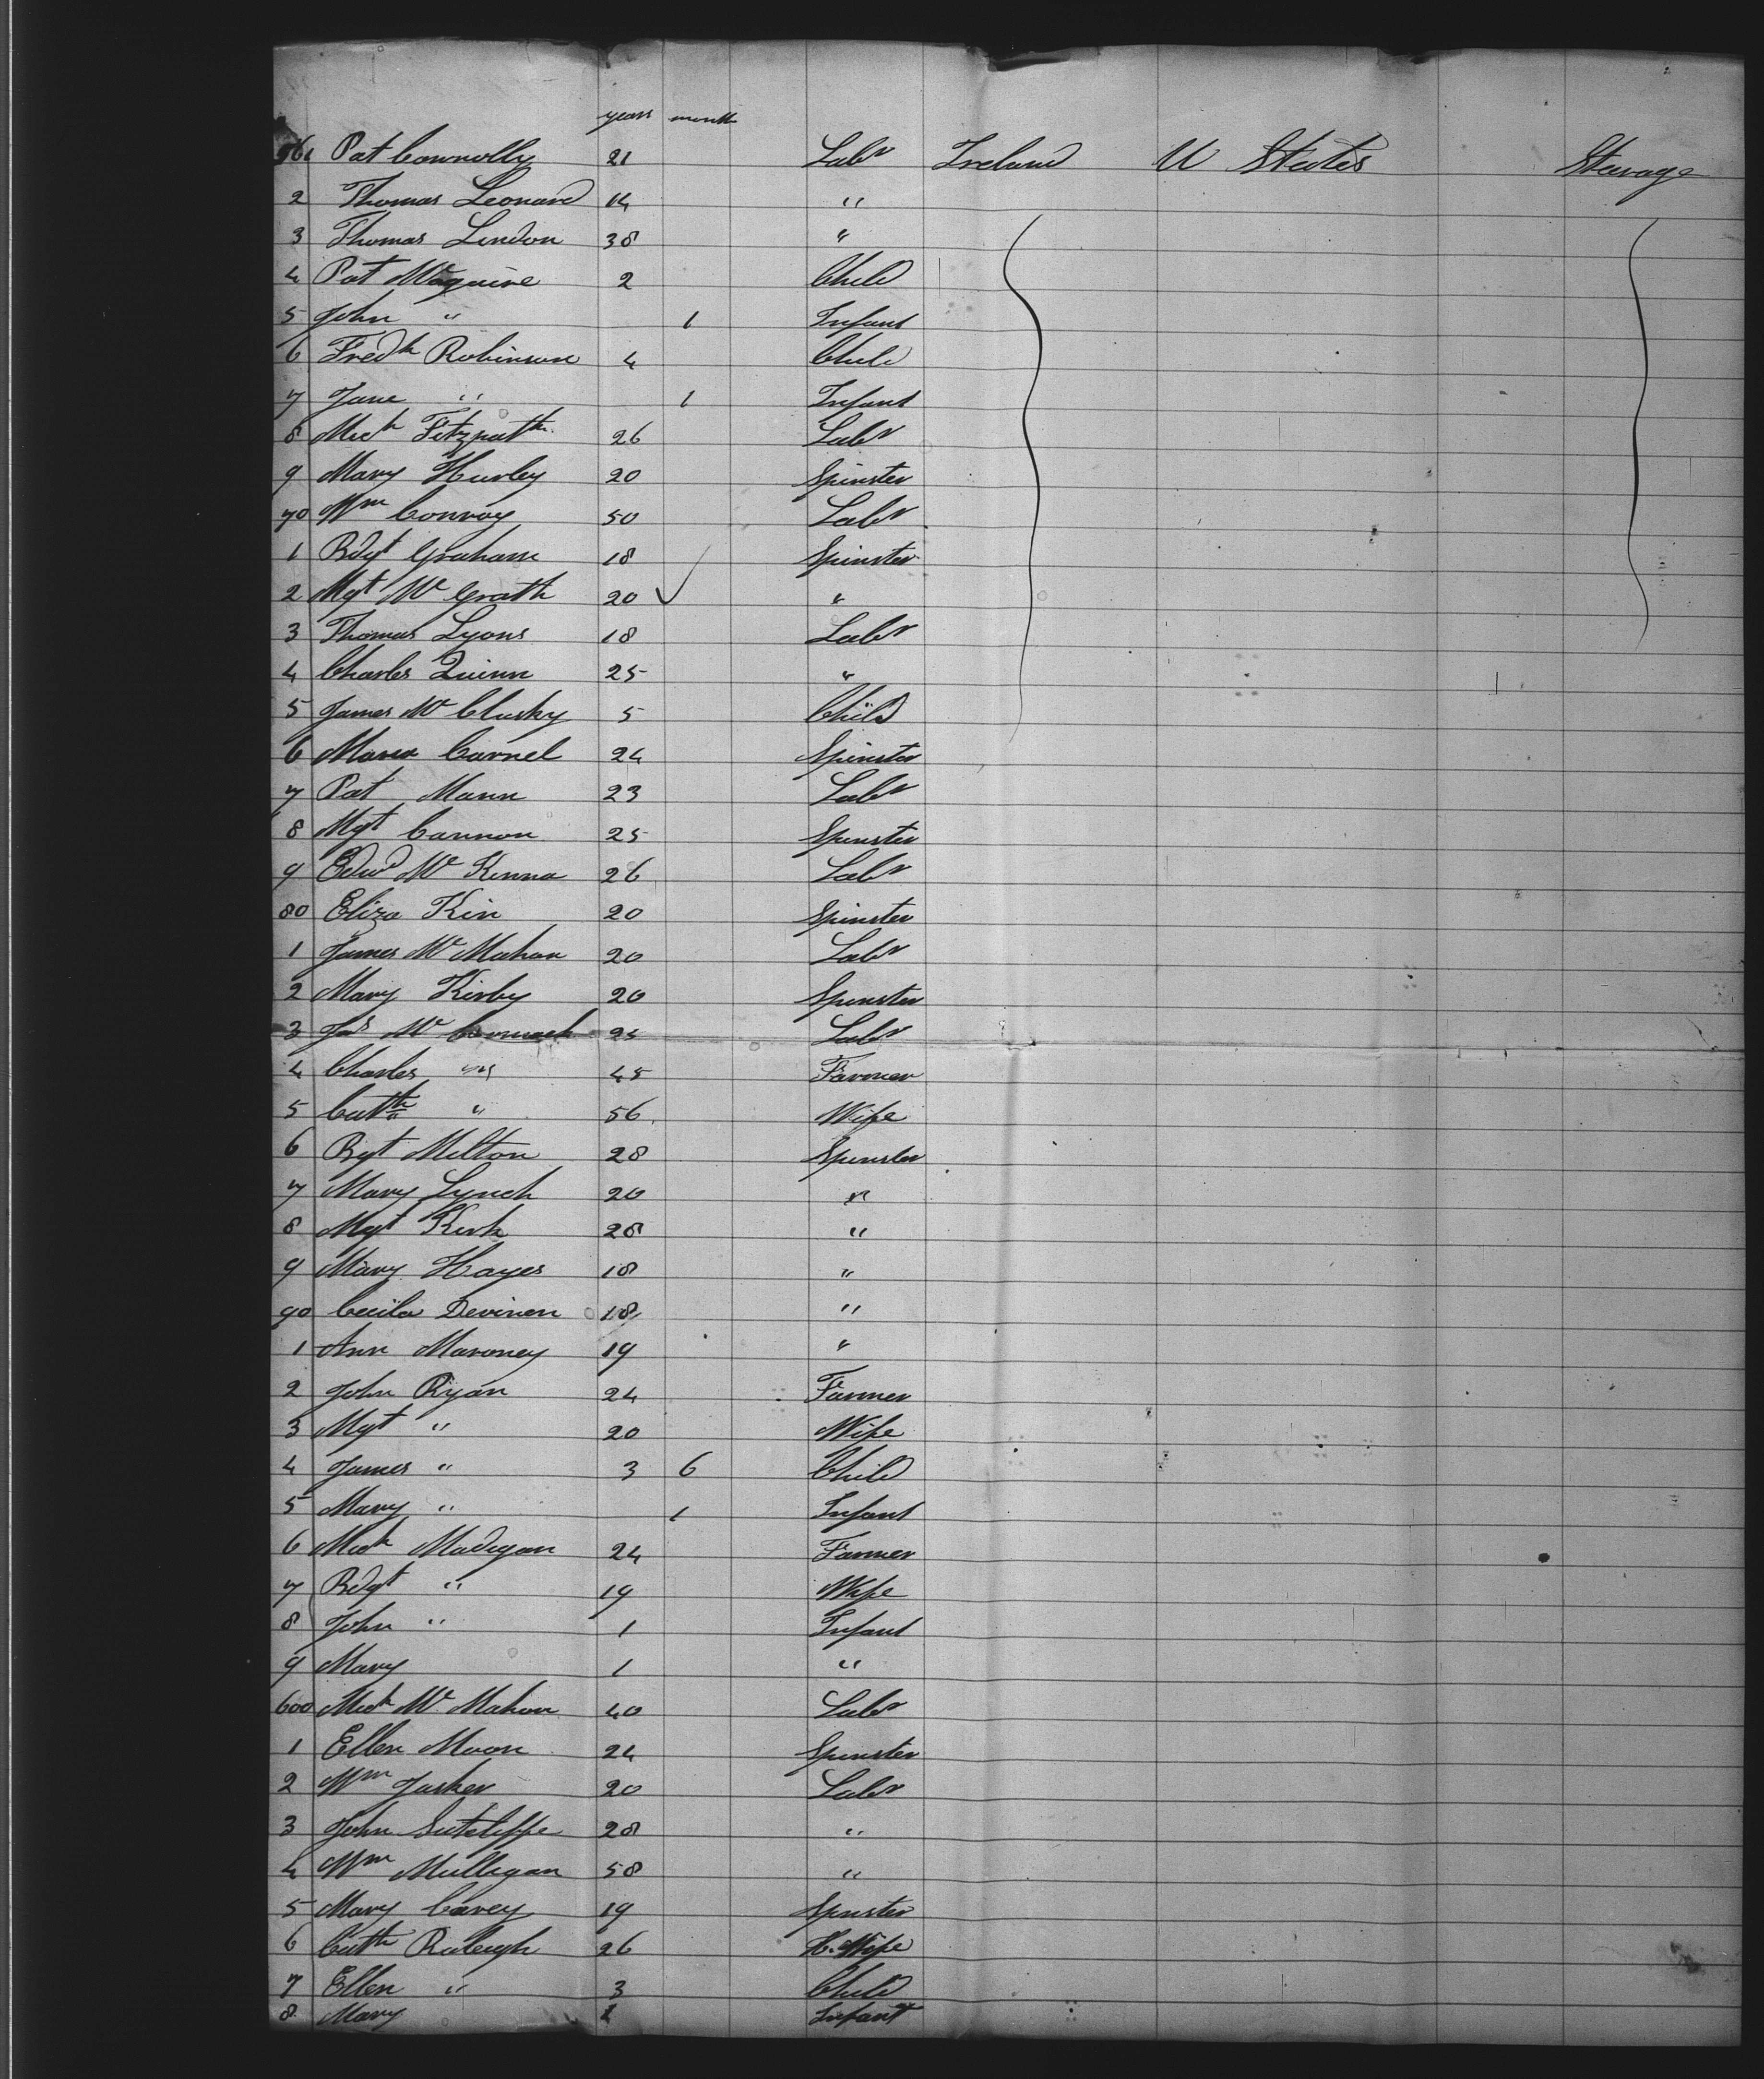 years month
561 Pat Connolly 21 Labr Ireland U States Steerage
2 Thomas Leonard 14 "
3 Thomas Lindon 38 "
4 Pat Maguire 2 Child
5 John " 1 Infant
6 Fredk Robinson 4 Child
7 Jane " 1 Infant
8 Mich Fitzpatk 26 Labr
9 Mary Hurley 20 Spinster
70 Wm Conroy 50 Labr
1 Bdgt Graham 18 Spinster
2 Mgt Mc Grath 20 "
3 Thomas Lyons 18 Labr
4 Charles Quinn 25 "
5 James Mc Clusky 5 Child
6 Maria Carnel 24 Spinster
7 Pat Mann 23 Labr
8 Mgt Cannon 25 Spinster
9 Edwd Mc Kenna 26 Labr
80 Eliza Kin 20 Spinster
1 James Mc Mahon 20 Labr
2 Mary Kirby 20 Spinster
3 Jas Mc Cormack 25 Labr
4 Charles " 45 Farmer
5 Cath " 56 Wife
6 Bgt Melton 28 Spinster
7 Mary Lynch 20 "
8 Mgt Kirk 28 "
9 Mary Hayes 18 "
90 Cecila Devinen 18 "
1 Ann Maroney 19 "
2 John Ryan 24 Farmer
3 Mgt " 20 Wife
4 James " 3 6 Child
5 Mary " 1 Infant
6 Mich Madigan 24 Farmer
7 Bdgt " 19 Wife
8 John " 1 Infant
9 Mary 1 "
600 Mich Mc Mahon 40 Labr
1 Ellen Moon 24 Spinster
2 Wm Tasker 20 Labr
3 John Sutcliffe 28 "
4 Wm Mulligan 58 "
5 Mary Carey 19 Spinster
6 Cath Raleigh 26 H. Wife
7 Ellen " 3 Child
8 Mary 1 Infant